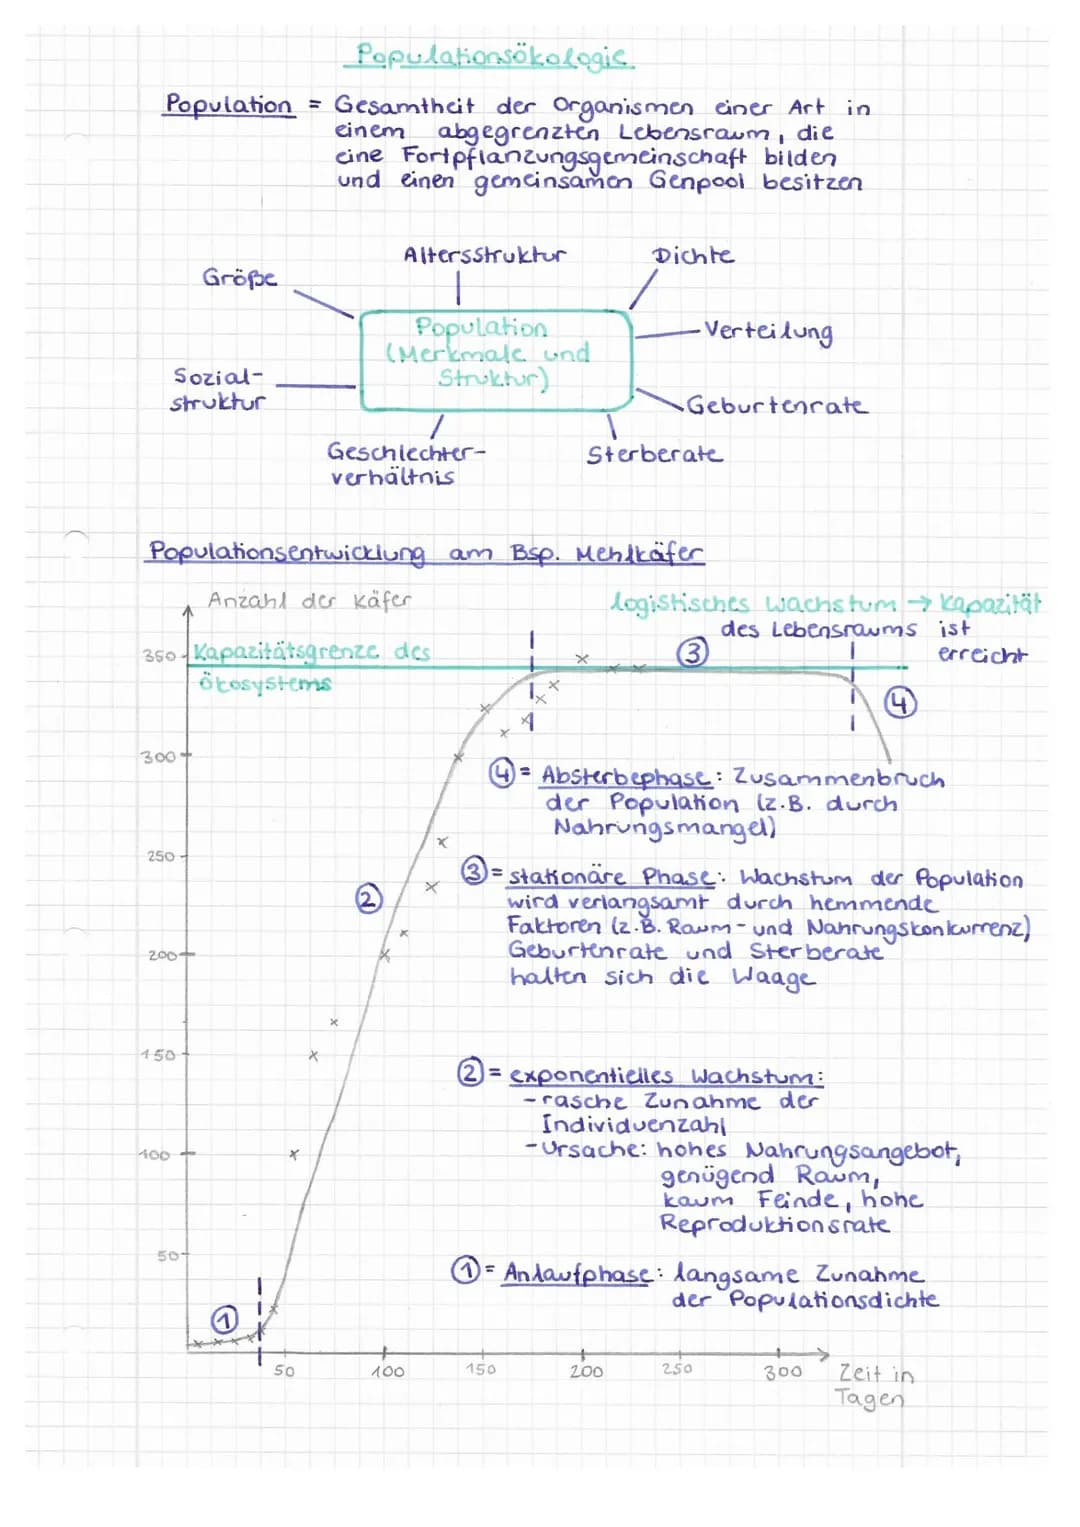 Populationsökologie
Population = Gesamtheit der Organismen einer Art in
einem abgegrenzten Lebensraum, die
eine Fortpflanzungsgemeinschaft bilden
und einen gemeinsamen Genpool besitzen
Altersstruktur
Dichte
Größe
Population
(Merkmale und
Struktur)
Verteilung
Sozial-
struktur
Geburtenrate
Geschlechter-
verhältnis
Sterberate
Populationsentwicklung am Bsp. Mehlkäfer
Anzahl der Käfer
logistisches Wachstum → Kapazität
des Lebensraums ist
erreicht
350
Kapazitätsgrenze des
Ökosystems
3
4
300
4 = Absterbephase: Zusammenbruch
der Population (z.B. durch
Nahrungsmangel)
250
2
3 = stationäre Phase: Wachstum der Population
wird verlangsamt durch hemmende
Faktoren (z.B. Raum- und Nahrungskonkurrenz)
Geburtenrate und Sterberate
halten sich die Waage
200
150
2 = exponentielles Wachstum:
- rasche Zunahme der
Individuenzahl
- Ursache: hohes Nahrungsangebot,
genügend Raum,
kaum Feinde, hohe
Reproduktionsrate
100
50
1 = Anlaufphase: langsame Zunahme
der Populationsdichte
1
50 100 150 200 250 300 Zeit in
Tagen